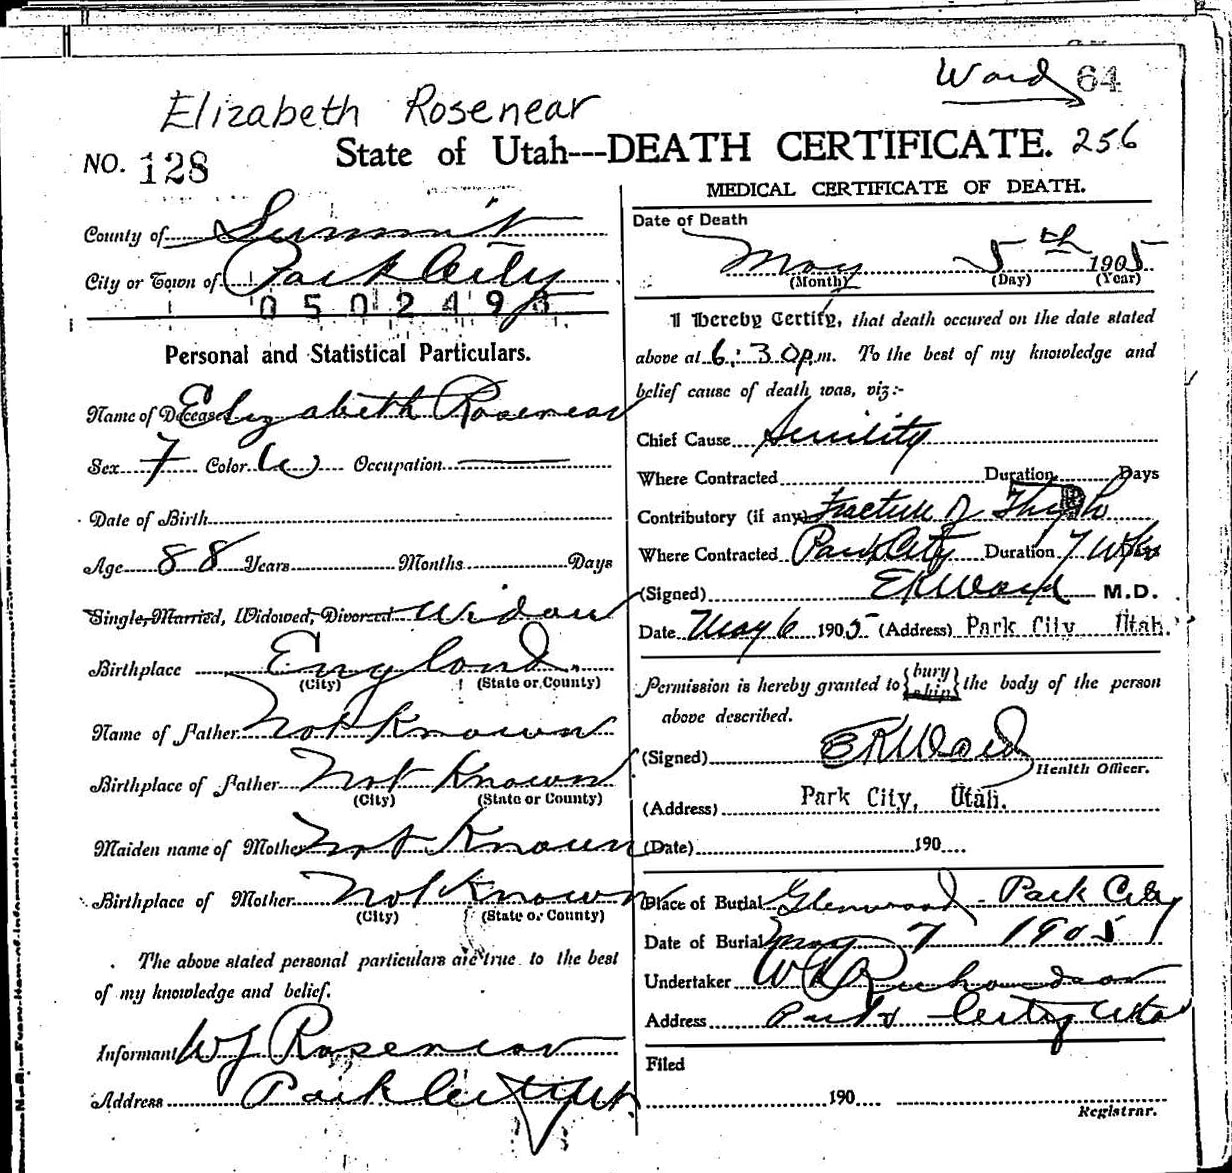 Ward 64
Elizabeth Rosenear
NO. 128
State of Utah---DEATH CERTIFICATE. 256
County of Summit
City or Town of Park City
050249
Personal and Statistical Particulars.
Name of Deceased Elizabeth Rosenear
Sex F Color W Occupation
Date of Birth
Age 88 Years Months Days
Single, Married, Widowed, Divorced Widow
Birthplace England
(City) (State or County)
Name of Father Not Known
Birthplace of Father Not Known
(City) (State or County)
Maiden name of Mother Not Known
Birthplace of Mother Not Known
(City) (State or County)
The above stated personal particulars are true to the best
of my knowledge and belief.
Informant WJ Rosenear
Address Park City Ut.
MEDICAL CERTIFICATE OF DEATH.
Date of Death
May 5th 1905
(Month) (Day) (Year)
I Hereby Certify, that death occured on the date stated
above at 6:30 p.m. To the best of my knowledge and
belief cause of death was, viz:-
Chief Cause Senility
Where Contracted Duration Days
Contributory (if any) Fracture of Thigh
Where Contracted Park City Duration 7 Wks
(Signed) EKWard M.D.
Date May 6 1905 (Address) Park City Utah.
Permission is hereby granted to {bury ship} the body of the person
above described.
(Signed) EKWard
Health Officer.
(Address) Park City, Utah.
(Date) 190
Place of Burial Glenwood - Park City
Date of Burial May 7 1905
Undertaker Richardson
Address Park City Uta
Filed
190
Registrar.